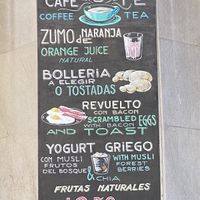 CAFÉ
COFFEE TEA
ZUMO de NARANJA
ORANGE JUICE
NATURAL
BOLLERIA
A ELEGIR
O TOSTADAS
REVUELTO
CON BACON
SCRAMBLED EGGS
WITH BACON
AND TOAST
YOGURT GRIEGO
CON MUSLI
FRUTOS
DEL BOSQUE
WITH MUSLI
FOREST
BERRIES
& CHIA
FRUTAS NATURALES